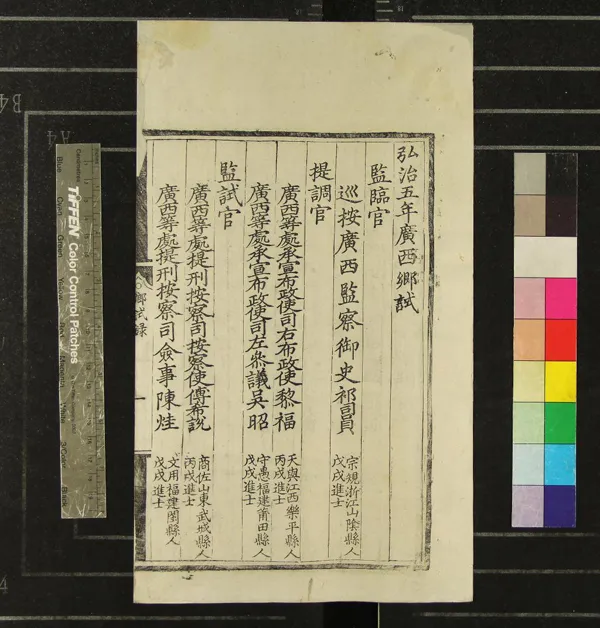 弘治五年廣西鄉試
監臨官
巡按廣西監察御史祁司員
宗規浙江山陰縣人
戊戌進士
提調官
廣西等處承宣布政使司右布政使黎福
天與江西樂平縣人
丙戌進士
廣西等處承宣布政使司左參議吳昭
守愚福建莆田縣人
戊戌進士
監試官
廣西等處提刑按察司按察使傅希說
商佐山東武城縣人
丙戌進士
廣西等處提刑按察司僉事陳烓
文用福建閩縣人
戊戌進士
鄉試錄
一
TIFFEN Color Control Patches
Blue
B4
A4